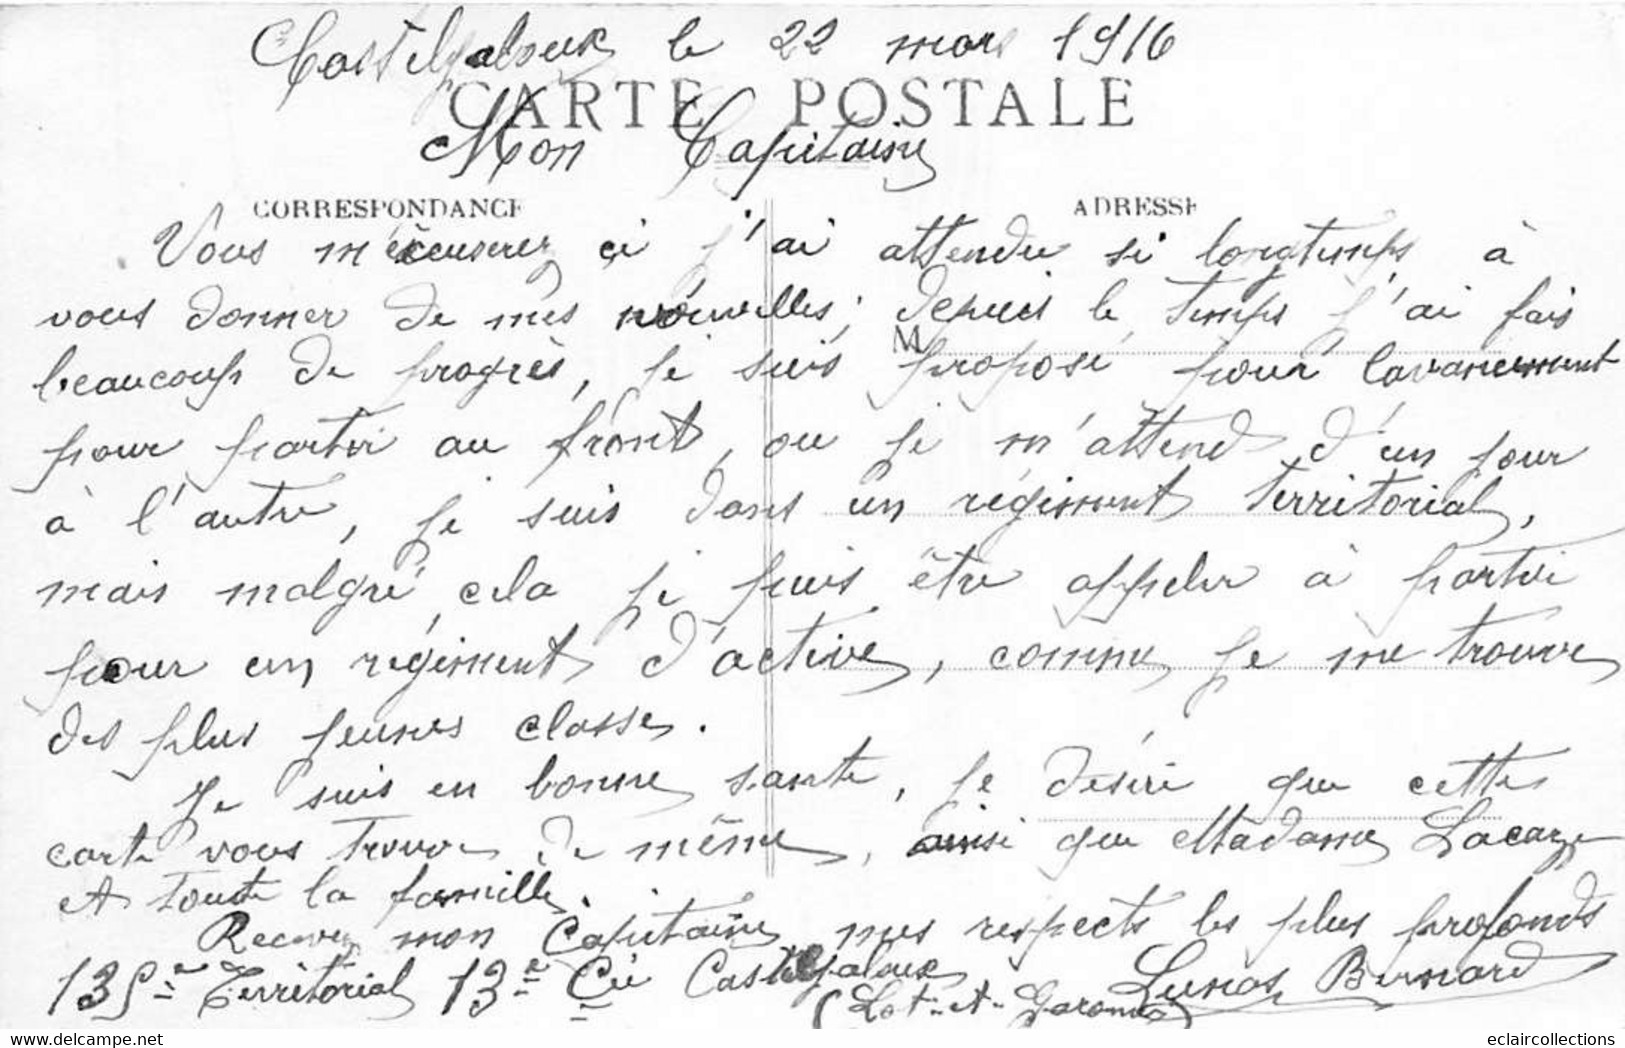 Castelgaloux le 22 mars 1916
CARTE POSTALE
Mon Capitaine
CORRESPONDANCE
ADRESSE
Vous m'éxcuserez çi j'ai attendu si longtemps à
vous donner de mes nouvelles; depuis le temps j'ai fais
M
beaucoup de progrès, je suis proposé pour lavancement
pour partir au front, ou je m'attend d'un jour
à l'autre, je suis dans un régiment territorial,
mais malgré cela je puis être appeler à partir
pour un régiment d'active, comme je me trouve
des plus jeunes classe.
Je suis en bonne sante, je désire que cette
carte vous trouve de même, ainsi que Madame Lacaze
et toute la famille.
Recevez mon Capitaine mes respects les plus profonds
135e Territorial 13e Cie Castelgaloux Bernard
(Lot-et-Garonne)
eclaircollections